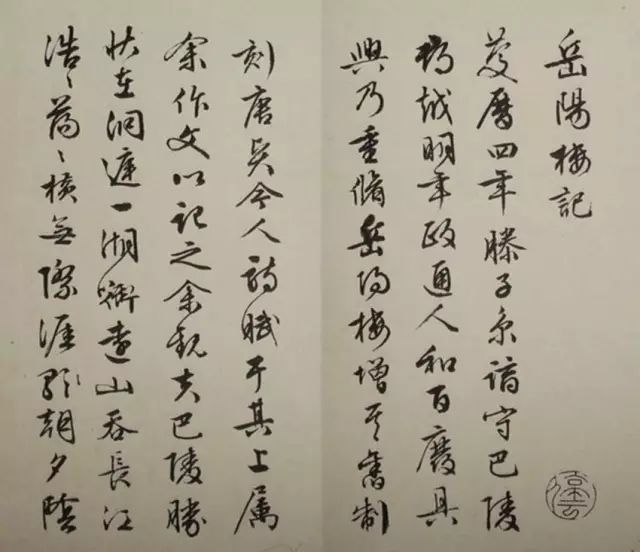 岳陽樓記
慶曆四年滕子京謫守巴陵
郡越明年政通人和百廢具
興乃重脩岳陽樓增其舊制
刻唐賢今人詩賦于其上属
余作文以記之余觀夫巴陵勝
状在洞庭一湖銜遠山吞長江
浩〻蕩〻橫無際涯朝暉夕陰